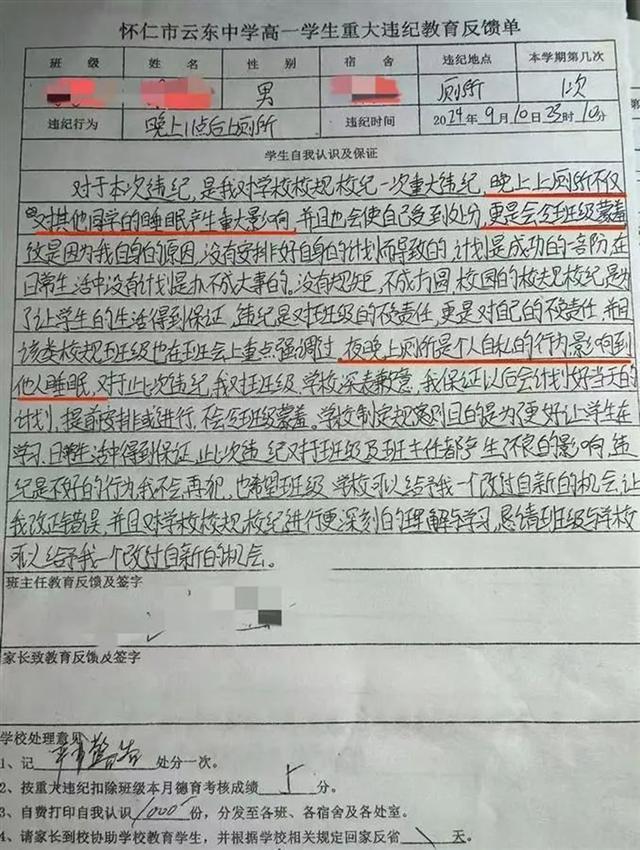 怀仁市云东中学高一学生重大违纪教育反馈单
班 级 姓 名 性 别 男 宿 舍 违纪地点 厕所 本学期第几次 1次
违纪行为 晚上11点后上厕所 违纪时间 2024年9月10日23时10分
学生自我认识及保证
对于本次违纪,是我对学校校规校纪一次重大违纪,晚上上厕所不仅
对其他同学的睡眠产生重大影响,并且也会使自己受到处分,更是会给班级蒙羞
这是因为我自身的原因,没有安排好自身的计划而导致的,计划是成功的一部阶,在
日常生活中没有计划是办不成大事的。没有规矩,不成方圆,校园的校规校纪是为
了让学生的生活得到保证,违纪是对班级的不责任,更是对自己的不责任,并且
该类校规班级也在班会上重点强调过,夜晚上厕所是个人自私的行为,影响到
他人睡眠,对于此次违纪,我对班级、学校深表歉意,我保证以后会计划好当天的
计划,提前安排或进行,不会给班级蒙羞。学校制定规章则目的是为了更好让学生在
学习、日常生活中得到保证,此次违纪对班级及班主任都产生了不良的影响,违
纪是不好的行为我不会再犯,也希望班级、学校可以给予我一个改过自新的机会,让
我改正错误,并且对学校校规、校纪进行更深刻的理解与学习,恳请班级与学校
可以给予我一个改过自新的机会。
班主任教育反馈及签字
家长致教育反馈及签字
学校处理意见
1、记 警告 处分一次。
2、按重大违纪扣除班级本月德育考核成绩 5 分。
3、自费打印自我认识 1000 份,分发至各班、各宿舍及各处室。
4、请家长到校协助学校教育学生,并根据学校相关规定回家反省 天。